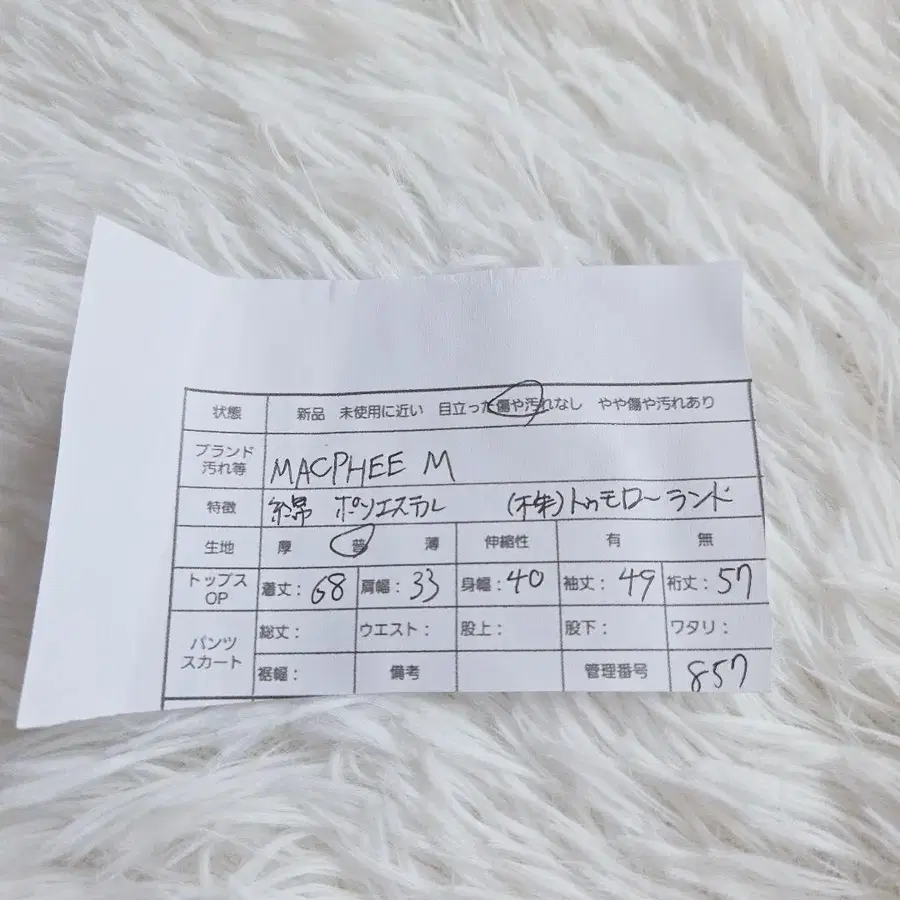 状態 新品 未使用に近い 目立った傷や汚れなし やや傷や汚れあり
ブランド
汚れ等 MACPHEE M
特徴 綿 ポリエステル (株)トゥモローランド
生地 厚 普 薄 伸縮性 有 無
トップス
OP 着丈：68 肩幅：33 身幅：40 袖丈：49 裄丈：57
パンツ
スカート 総丈： ウエスト： 股上： 股下： ワタリ：
裾幅： 備考 管理番号 857